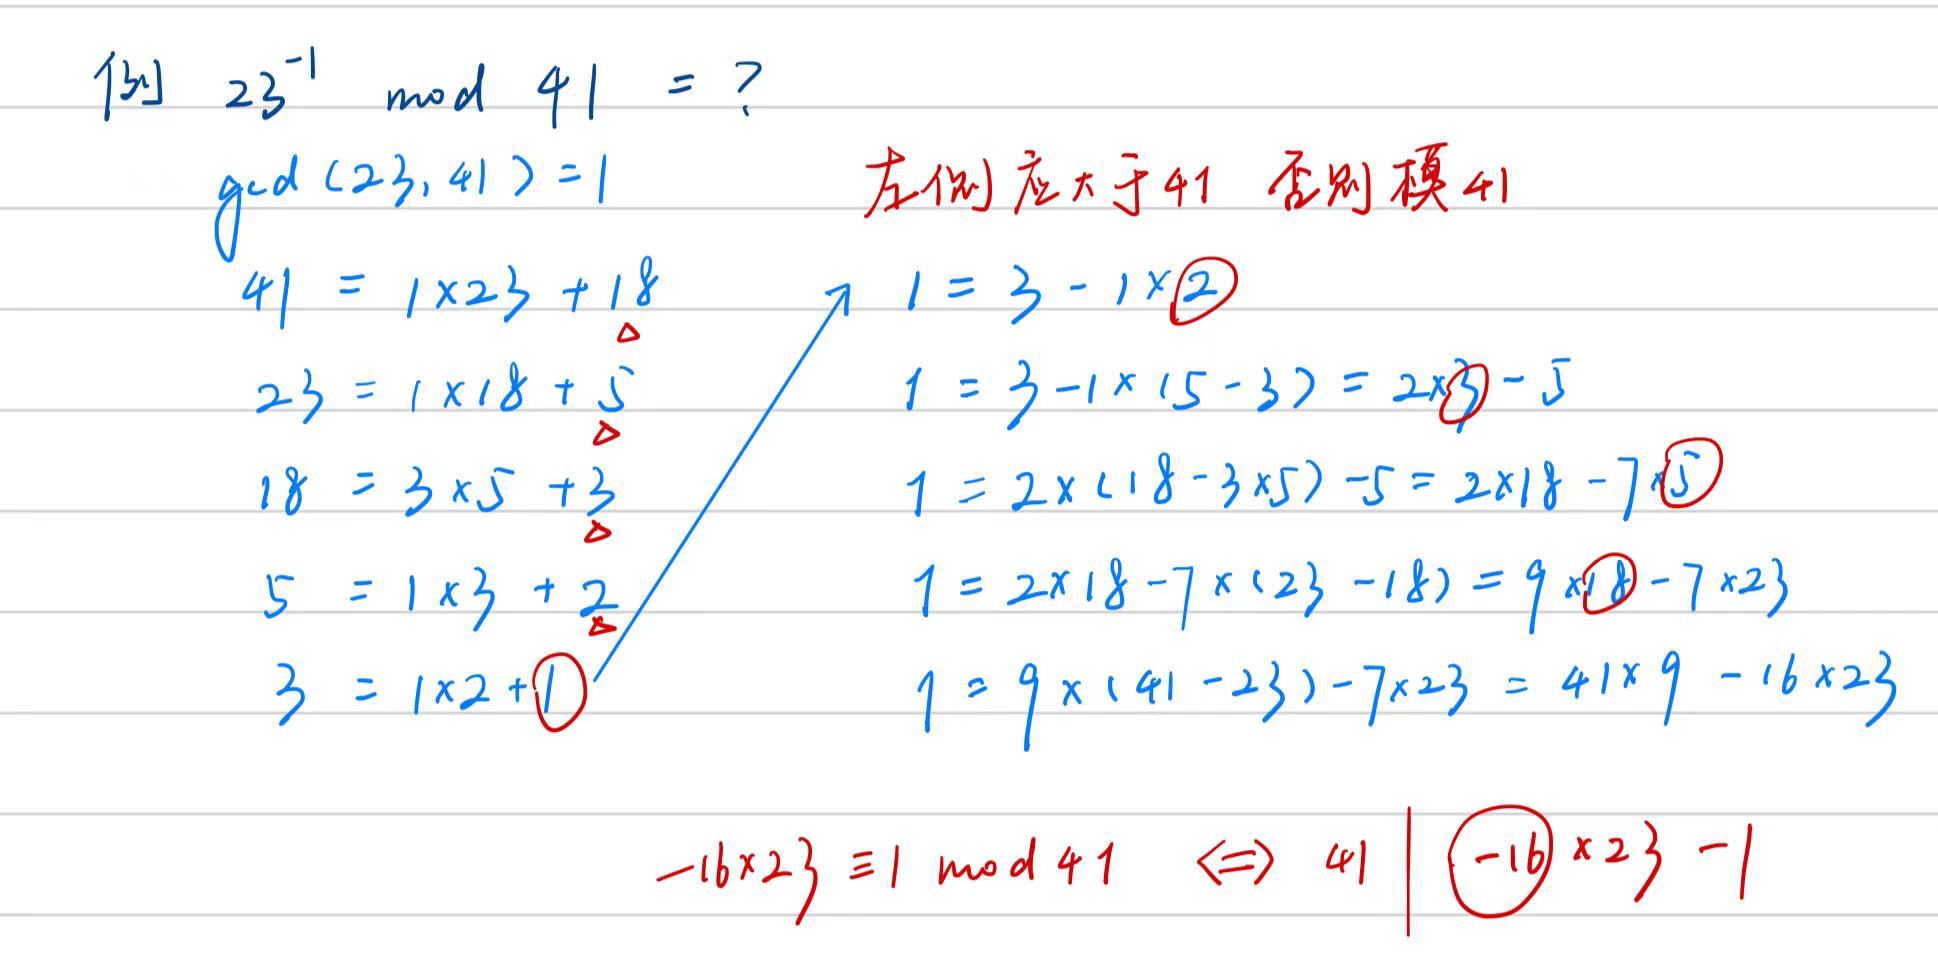 例 23⁻¹ mod 41 = ?
gcd(23, 41) = 1
41 = 1×23 + 18
23 = 1×18 + 5
18 = 3×5 + 3
5 = 1×3 + 2
3 = 1×2 + 1
左侧应大于41 否则模41
1 = 3 - 1×2
1 = 3 - 1×(5-3) = 2×3 - 5
1 = 2×(18-3×5) - 5 = 2×18 - 7×5
1 = 2×18 - 7×(23-18) = 9×18 - 7×23
1 = 9×(41-23) - 7×23 = 41×9 - 16×23
-16×23 ≡ 1 mod 41 ⇔ 41 | -16×23 - 1